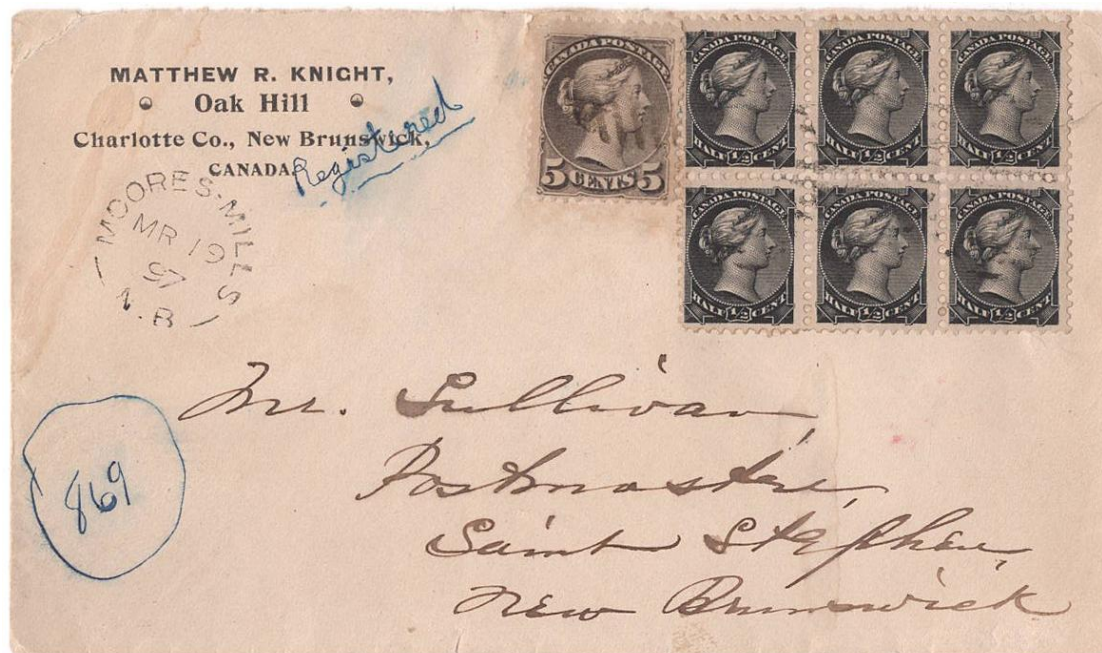 MATTHEW R. KNIGHT,
Oak Hill
Charlotte Co., New Brunswick,
CANADA.
Registered
MOORES-MILLS
MR 19
97
N.B
CANADA POSTAGE
5 CENTS 5
CANADA POSTAGE
HALF 1/2 CENT
CANADA POSTAGE
HALF 1/2 CENT
CANADA POSTAGE
HALF 1/2 CENT
CANADA POSTAGE
HALF 1/2 CENT
CANADA POSTAGE
HALF 1/2 CENT
CANADA POSTAGE
HALF 1/2 CENT
Mr. Sullivan,
Postmaster,
Saint Stephen,
New Brunswick
869